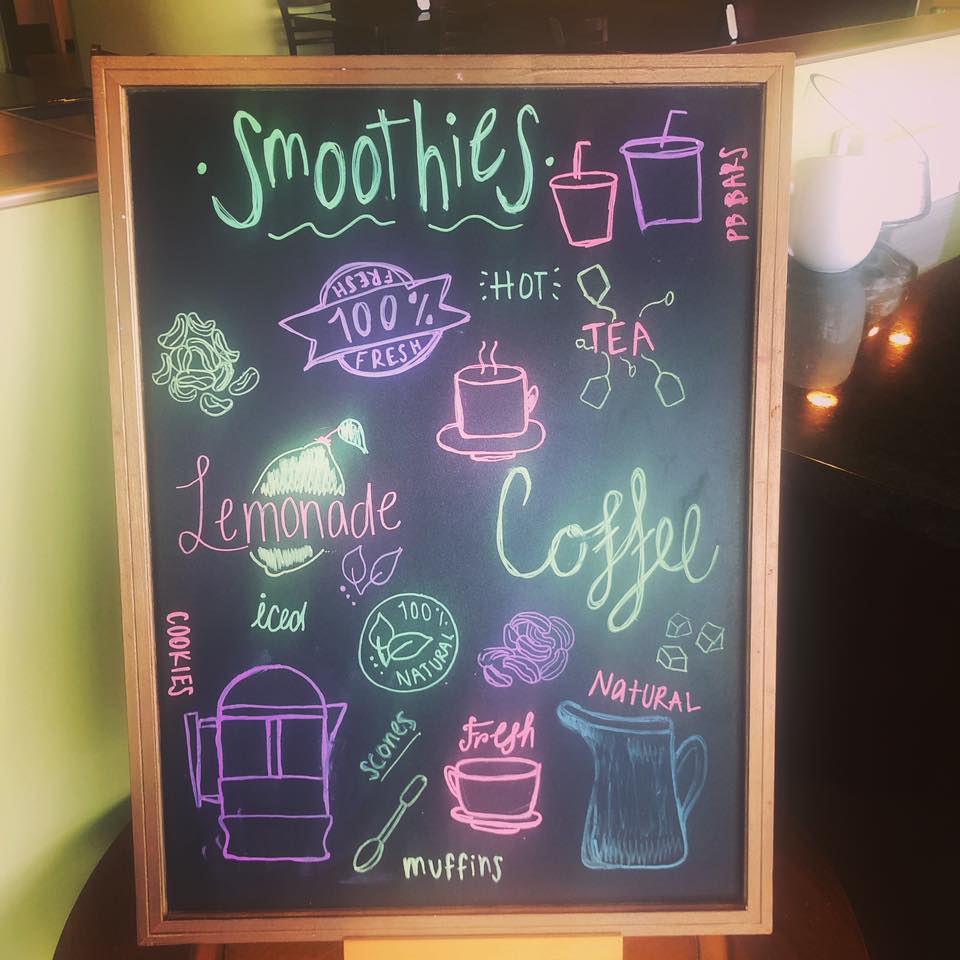 ·Smoothies·
PB BARS
FRESH
100%
FRESH
HOT
TEA
Lemonade
Coffee
iced
COOKIES
100%
NATURAL
NATURAL
scones
Fresh
muffins